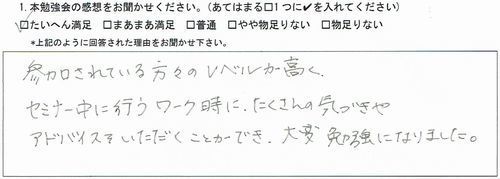 1. 本勉強会の感想をお聞かせください。(あてはまる□1つに✔を入れてください)
☑たいへん満足 □まあまあ満足 □普通 □やや物足りない □物足りない
*上記のように回答された理由をお聞かせ下さい。
参加されている方々のレベルが高く、
セミナー中に行うワーク時に、たくさんの気づきや
アドバイスをいただくことができ、大変勉強になりました。